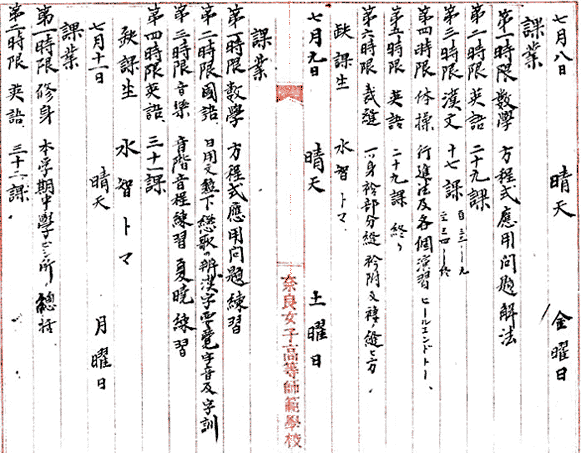 七月八日 晴天 金曜日
課業
第一時限 数學 方程式應用问題解法
第二時限 英語 二十九課
第三時限 漢文 十七課
第四時限 体操 行進法及各個演習 ヒールエンドトー、
第五時限 英語 二十九課 終り
第六時限 裁縫 一ツ身衿部分縫 衿附及褄ノ縫ヒ方.
缺課生 水智トマ
七月九日 晴天 土曜日
奈良女子高等師範學校
課業
第一時限 数學 方程式應用问題練習
第二時限 國語 日用文 漢字 字音及字訓
第三時限 音樂 音階音程練習 夏暁 練習
第四時限 英語 三十一課
缺課生 水智トマ
七月十一日 晴天 月曜日
課業
第一時限 修身 本学期中學ビシ所ノ總括
第二時限 英語 課.